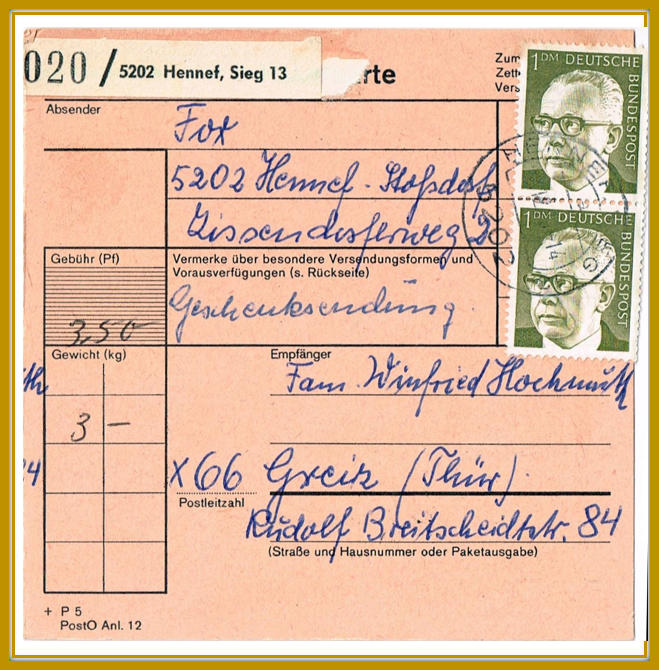 020 / 5202 Hennef, Sieg 13
rte
Zum
Zette
Vers
1 DM DEUTSCHE BUNDESPOST
1 DM DEUTSCHE BUNDESPOST
5202
Absender
Fox
5202 Hennef - Stoßdorf
Zissendorferweg 2
Gebühr (Pf)
3,50
Vermerke über besondere Versendungsformen und
Vorausverfügungen (s. Rückseite)
Geschenksendung
Gewicht (kg)
3 -
Empfänger
Fam. Winfried Hochmuth
X66 Greiz (Thür).
Postleitzahl
Rudolf Breitscheidtstr. 84
(Straße und Hausnummer oder Paketausgabe)
th
84
+ P 5
PostO Anl. 12